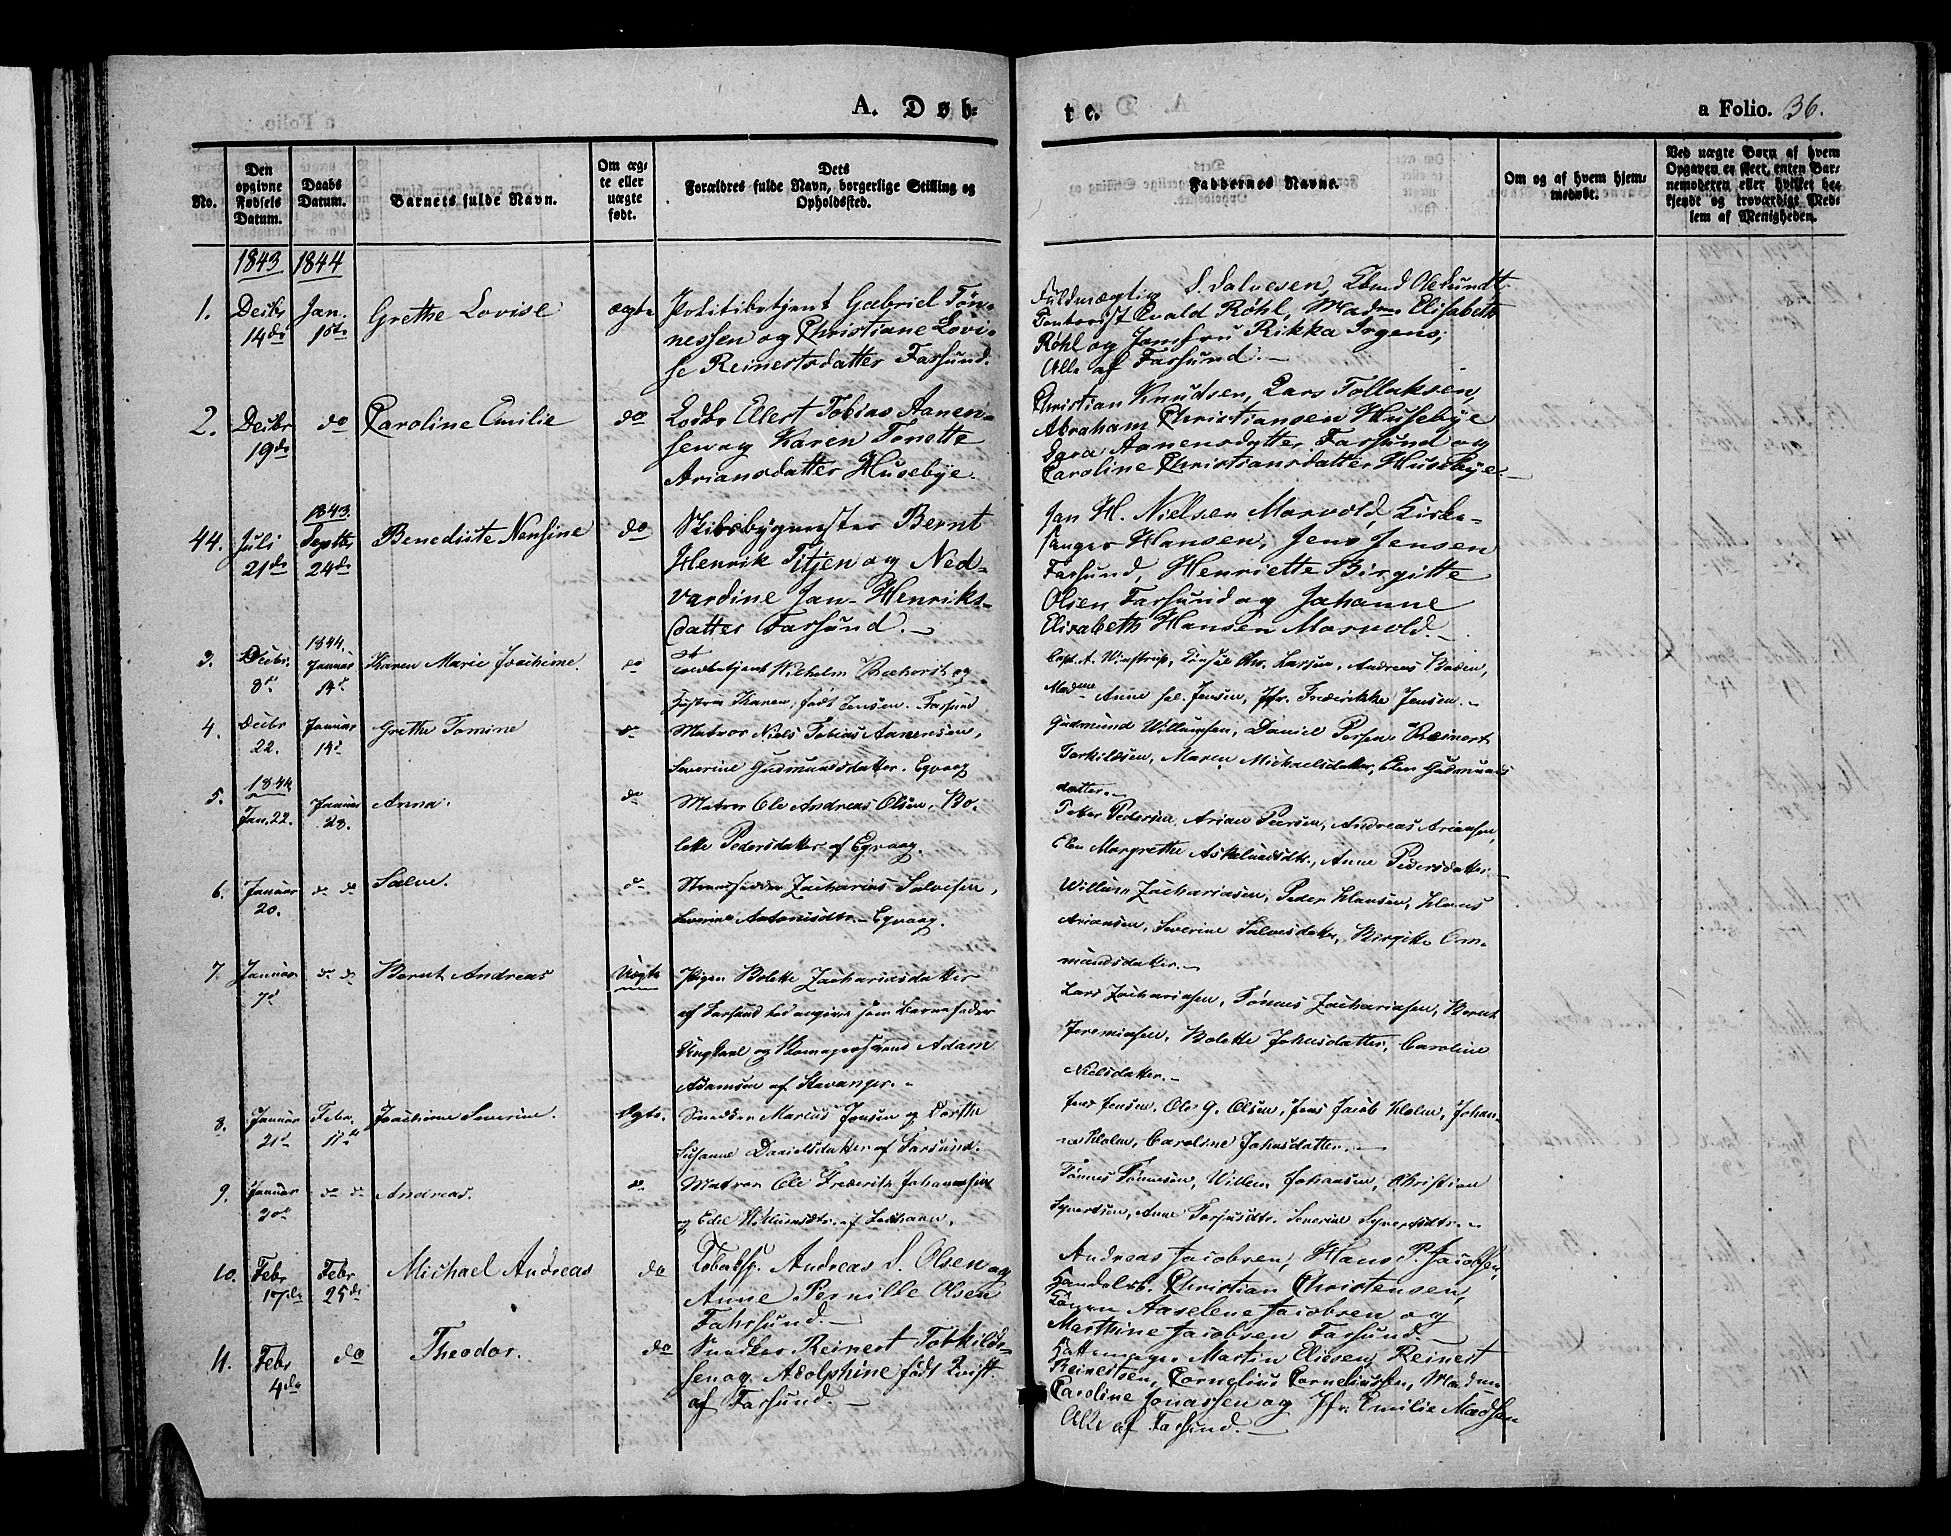 A. Døb-
te.
a Folio. 36.
No.
Den opgivne Fødsels Datum.
Daabs Datum.
Barnets fulde Navn.
Om ægte eller uægte født.
Dets Forældres fulde Navn, borgerlige Stilling og Opholdssted.
Faddernes Navne.
Om og af hvem hjemmedøbt.
Ved uægte Børn af hvem Opgaven er skeet, enten Barnemoderen eller hvilket bekjendt og troværdigt Medlem af Menigheden.
1843 1844
1. Decbr 14de Jan. 1ste Grethe Lovise ægte Politibetjent Gabriel Tøn-
nessen og Christiane Lovi-
se Reinertsdatter Farsund.
Fuldmægtig S. Salvesen,
Contorist Evald Røhl, Madm Elisabeth
Røhl og Jomfru Rikka
Alle af Farsund.
2. Decbr 19de do Caroline Emilie do Lods Elert Tobias Aanen-
sen og Karen Tonette
Ariansdatter Husebye.
Christian Knudsen, Lars Tollaksen,
Abraham Christiansen Husebye
Aanensdatter Farsund og
Caroline Christiansdatter Husebye.
44. Juli 21de 1843 Septbr 24de Benedicte Nensine do Skibsbygmester Bernt
Henrik Titjen og Ned-
vardine Jan-Henriks-
datter Farsund.
Jan H. Nielsen Morvold, Kirke-
sanger Hansen, Jens Jensen
Farsund, Henriette Birgitte
Olsen Farsund og Johanne
Elisabeth Hansen Morvold.
3. Decbr. 8de 1844. Januar 14d Karen Marie Joachime. do Toldbetjent Wilhelm og
Hustru Karen, født Jensen. Farsund
Capt. A. Winstrup, Chr. Larsen, Andreas
Madme Anne sal. Jensen, Jfr. Frederikke Jensen.
4. Decbr 22. Januar 14d Grethe Tomine do Matros Niels Tobias Aanensen,
Severine Gudmundsdatter. Egvaag
Gudmund Willumsen, Daniel Reinert
Torkildsen, Maren Michaelsdatter, Elen Gudmunds
datter.
5. 1844 Jan. 22. Januar 28. Anna. do Matros Ole Andreas Olsen, Bo-
lette Pedersdatter af Egvaag.
Peder Pedersen, Arian Peersen, Andreas Ariansen,
Elen Margrethe Anne Pedersdatter.
6. Januar 20. do do Salve. do Strandsidder Zacharias Salvesen,
Severine Antonisdtr. Egvaag.
Willum Zachariasen, Peder Hansen, Hans
Ariansen, Severine Salvesdatter, Birgitte Om-
mundsdatter.
7. Januar 7d do do Bernt Andreas Uægte Pigen Bolette Zachariasdatter
af Farsund som Barnefader
Ungkarl og Adam
Adamsen af Stavanger.
Lars Zachariasen, Tønnes Zachariasen, Bernt
Jeremiasen, Bolette Johnsdatter, Caroline
Nielsdatter.
8. Januar 21d Febr. 11te Joachime Severine. Ægte. Snedker Marius Jensen og Dorthe
Susanne Danielsdatter af Farsund.
Jens Jensen, Ole G. Olsen, Jens Jacob Holm, Johan-
ne Holm, Caroline Johnsdatter.
9. Januar 30d do do Andreas. do Matros Ole Frederik Johannesen
og Edel Willumsdtr. af
Tønnes Tønnesen, Willum Johansen, Christian
Syvertsen, Anne Torjusdtr. Severine Syvertsdtr.
10. Febr 17de Febr 25de Michael Andreas do Tobaksp. Andreas S. Olsen og
Anne Pernille Olsen
Fahrsund.
Andreas Jacobsen, Hans P. Jacobsen,
Handelsb. Christian Christensen,
Aaselene Jacobsen og
Marthine Jacobsen Farsund.
11. Febr 4de do Theodor. do Snedker Reinert Torkild-
sen og Adolphine født Qvist
af Farsund.
Hattemager Martin Eliesen, Reinert
Reinertsen, Cornelius Corneliussen, Madm
Caroline Jonassen og Jfr. Emilie Madsen
Alle af Farsund.